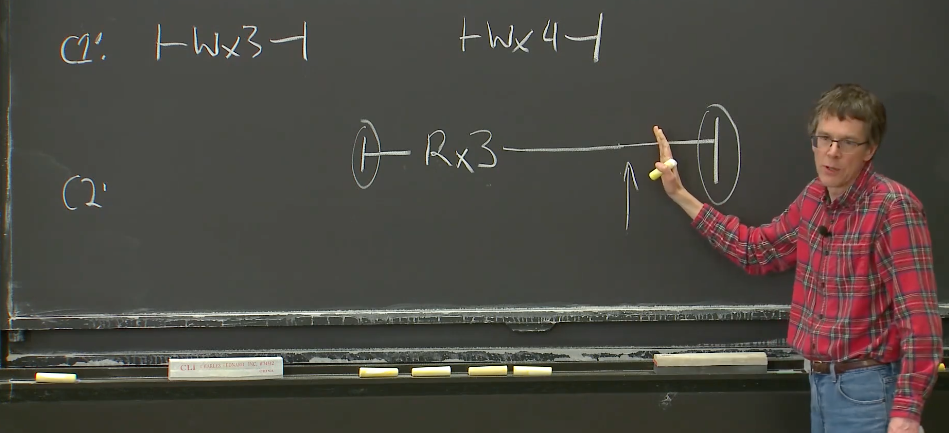 C1: |-Wx3-| |-Wx4-|
|- Rx3 -|
C2: